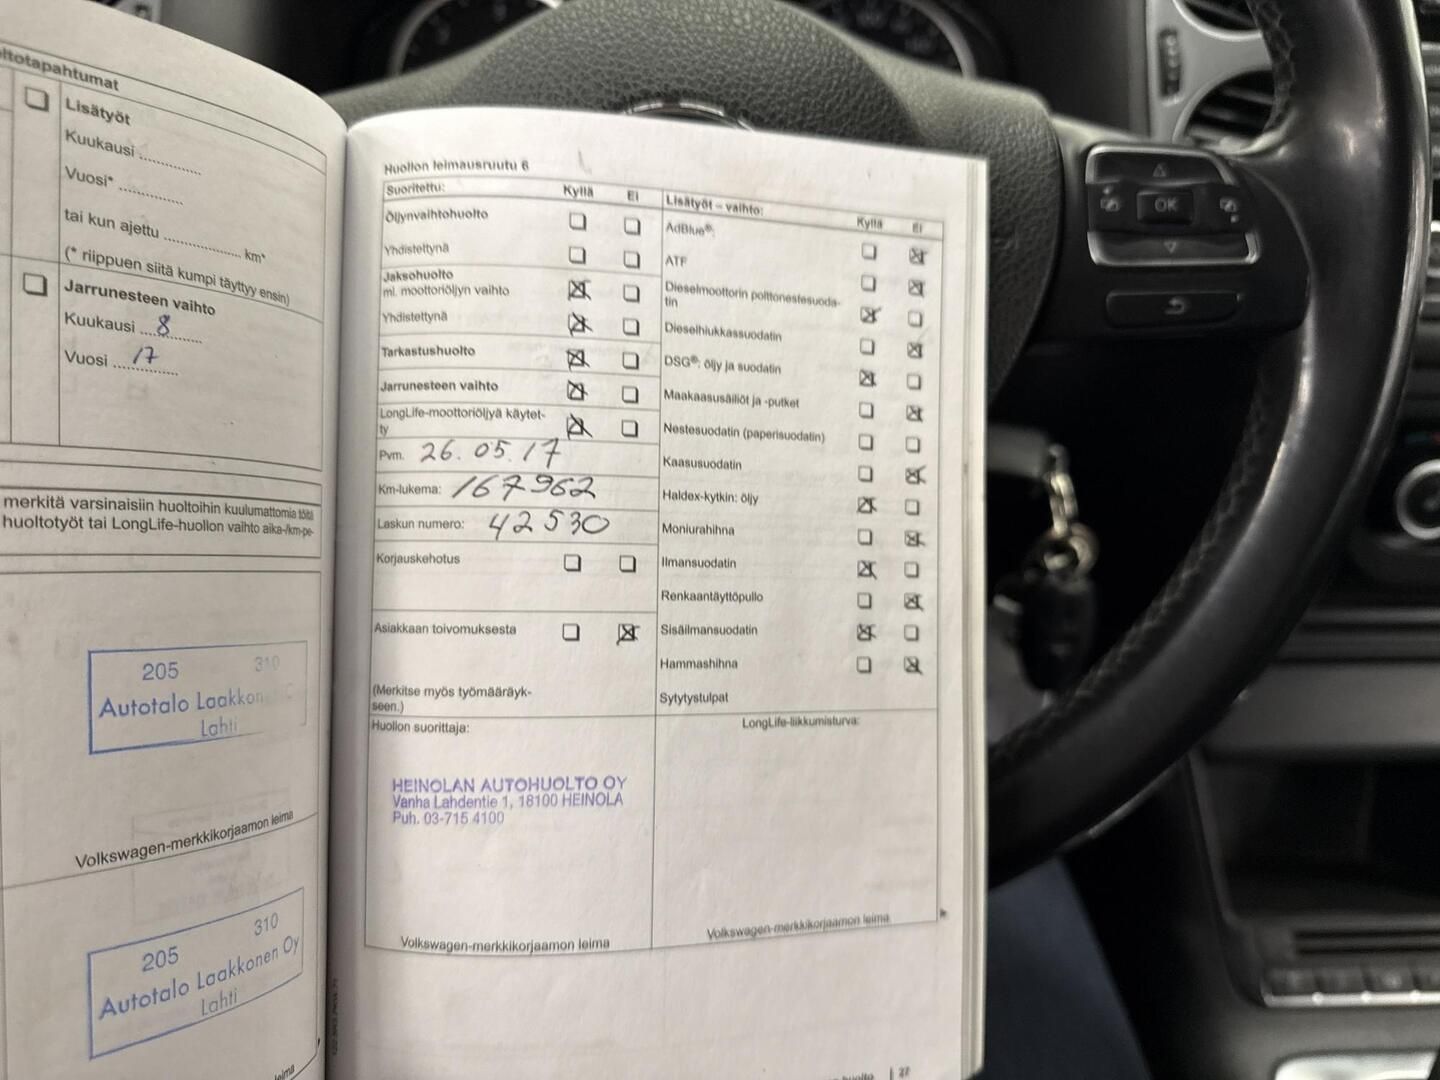 ltotapahtumat
Lisätyöt
Kuukausi ............
Vuosi* ............
tai kun ajettu ............... km*
(* riippuen siitä kumpi täyttyy ensin)
Jarrunesteen vaihto
Kuukausi ....8........
Vuosi ....17........
merkitä varsinaisiin huoltoihin kuulumattomia töitä
huoltotyöt tai LongLife-huollon vaihto aika-/km-pe-
205 310
Autotalo Laakkon
Lahti
Volkswagen-merkkikorjaamon leima
205 310
Autotalo Laakkonen Oy
Lahti
leima
Huollon leimausruutu 6
Suoritettu: Kyllä Ei
Öljynvaihtohuolto
Yhdistettynä
Jaksohuolto
ml. moottoriöljyn vaihto
Yhdistettynä
Tarkastushuolto
Jarrunesteen vaihto
LongLife-moottoriöljyä käytet-
ty
Pvm. 26.05.17
Km-lukema: 167962
Laskun numero: 42530
Korjauskehotus
Asiakkaan toivomuksesta
(Merkitse myös työmääräyk-
seen.)
Huollon suorittaja:
HEINOLAN AUTOHUOLTO OY
Vanha Lahdentie 1, 18100 HEINOLA
Puh. 03-715 4100
Volkswagen-merkkikorjaamon leima
Lisätyöt – vaihto: Kyllä Ei
AdBlue®:
ATF
Dieselmoottorin polttonestesuoda-
tin
Dieselhiukkassuodatin
DSG®: öljy ja suodatin
Maakaasusäiliöt ja -putket
Nestesuodatin (paperisuodatin)
Kaasusuodatin
Haldex-kytkin: öljy
Moniurahihna
Ilmansuodatin
Renkaantäyttöpullo
Sisäilmansuodatin
Hammashihna
Sytytystulpat
LongLife-liikkumisturva:
Volkswagen-merkkikorjaamon leima
huolto | 27
OK